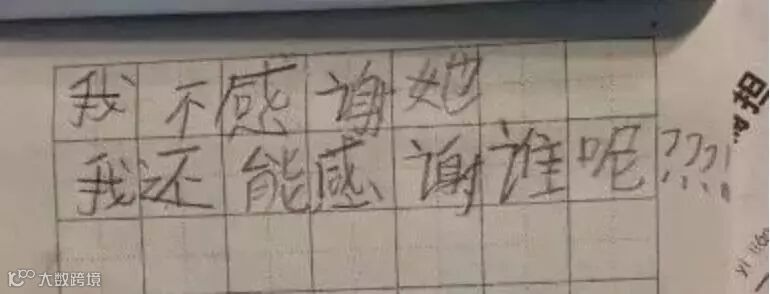 我不感谢她
我还能感谢谁呢???!
担
yì
大数跨境